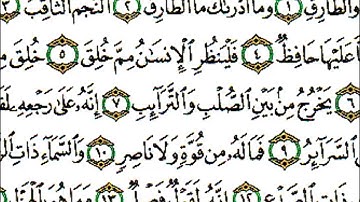 وَالطَّارِقِ ١ وَمَا أَدْرَىٰكَ مَا الطَّارِقُ ٢ النَّجْمُ الثَّاقِبُ ٣
عَلَيْهَا حَافِظٌ ٤ فَلْيَنظُرِ الْإِنسَانُ مِمَّ خُلِقَ ٥ خُلِقَ مِن
٦ يَخْرُجُ مِنۢ بَيْنِ الصُّلْبِ وَالتَّرَآئِبِ ٧ إِنَّهُۥ عَلَىٰ رَجْعِهِۦ
السَّرَآئِرُ ٩ فَمَا لَهُۥ مِن قُوَّةٍ وَلَا نَاصِرٍ ١٠ وَالسَّمَآءِ ذَاتِ
ذَاتِ ١٢ إِنَّهُۥ لَقَوْلٌ فَصْلٌ ١٣ وَمَا هُوَ